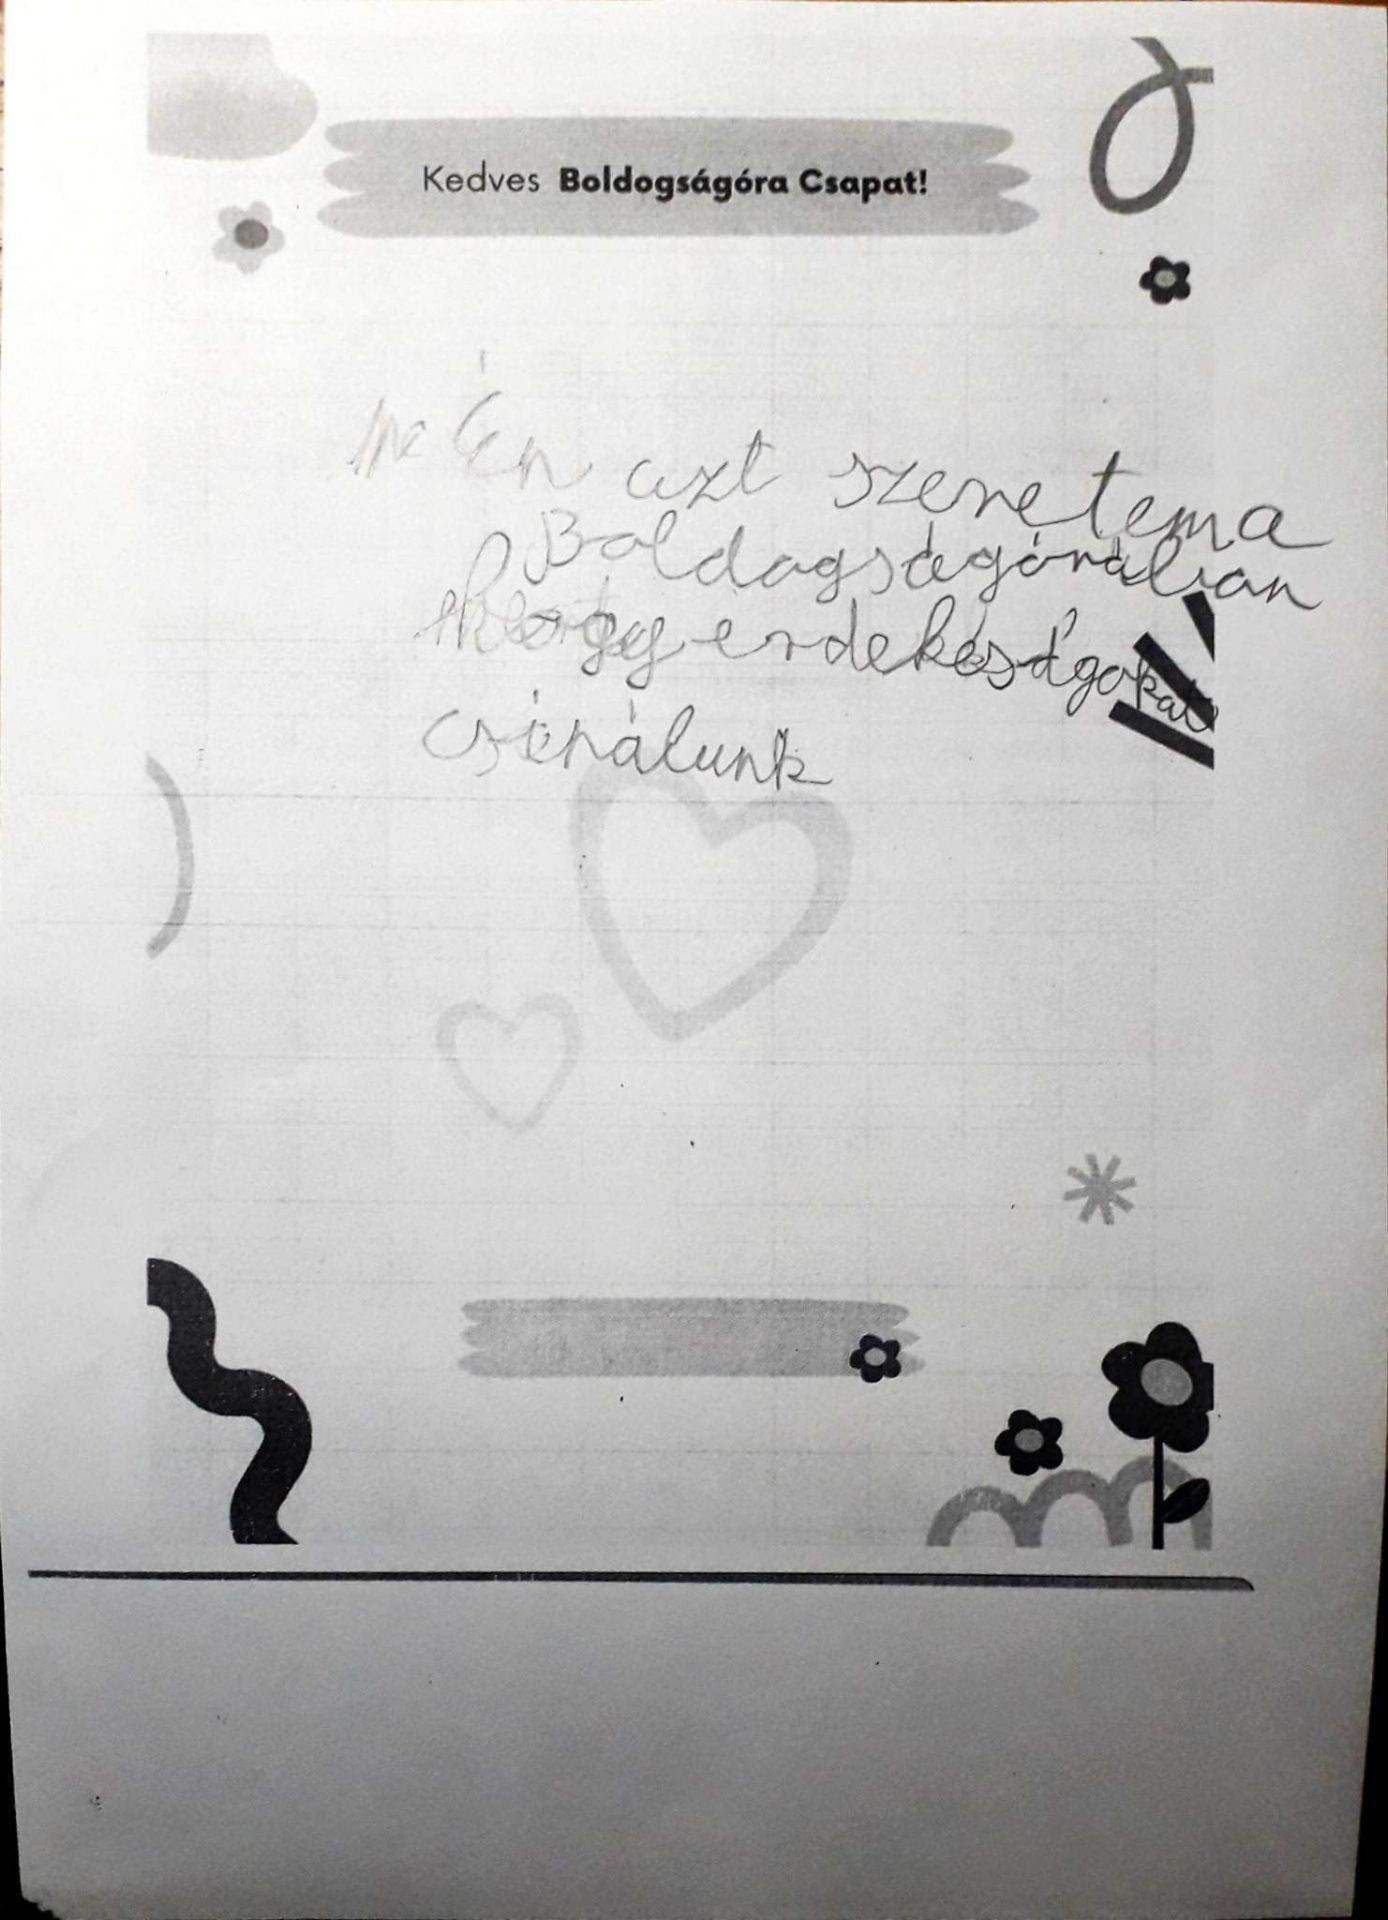 Kedves Boldogságóra Csapat!
Én azt szeretema
Boldogságórában
hogy erdekességokat
csinálunk